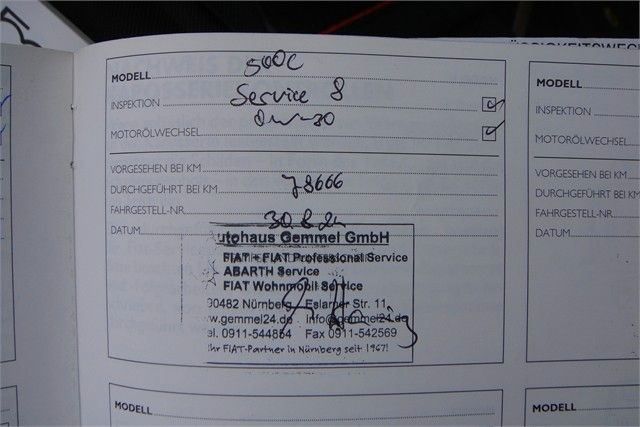 SSIGKEITSWEC
MODELL 500C
INSPEKTION Service 8
MOTORÖLWECHSEL 0W-30
VORGESEHEN BEI KM
DURCHGEFÜHRT BEI KM 78666
FAHRGESTELL-NR.
DATUM 30.8.24
utohaus Gemmel GmbH
FIAT - FIAT Professional Service
ABARTH Service
FIAT Wohnmobil Service
90482 Nürnberg Eslarner Str. 11
w.gemmel24.de info@gemmel24.de
el. 0911-544854 Fax 0911-542569
Ihr FIAT-Partner in Nürnberg seit 1967!
MODELL
MODELL
INSPEKTION
MOTORÖLWECHSEL
VORGESEHEN BEI KM
DURCHGEFÜHRT BEI KM
FAHRGESTELL-NR.
DATUM
MODELL